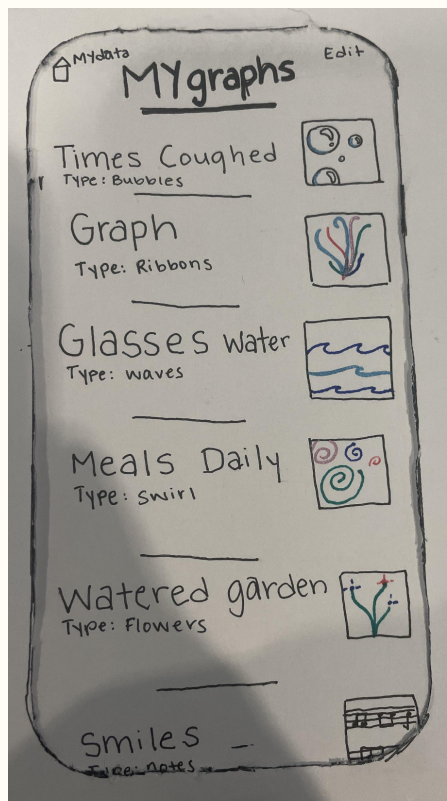 Mydata
Edit
MYgraphs
Times Coughed
Type: Bubbles
Graph
Type: Ribbons
Glasses water
Type: waves
Meals Daily
Type: swirl
Watered garden
Type: Flowers
Smiles
Type: notes